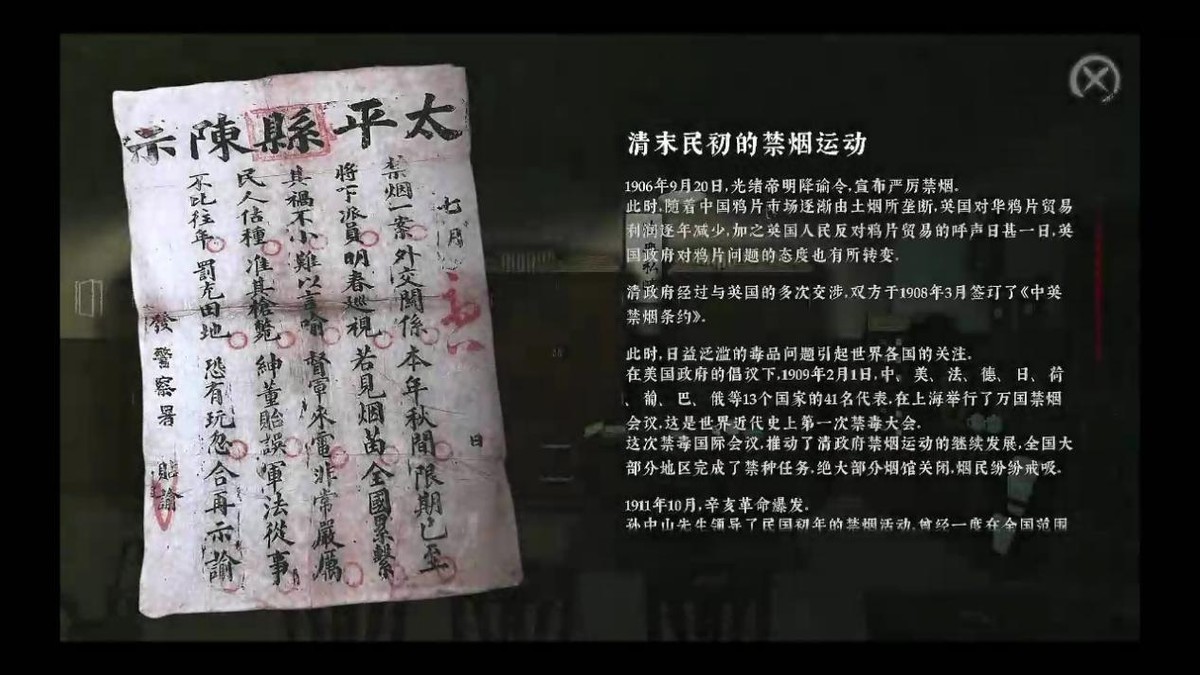 太平縣陳示
七月 日
禁烟一案 外交關係 本年秋間限期已至
將下派員 明春巡視 若見烟苗 全國累繫
其禍不小 難以言喻 督軍來電 非常嚴厲
民人估種 准其槍斃 紳董貽誤 軍法從事
不比往年 罰充田地 恐有玩忽 合再示諭
發警察署 貼諭
清末民初的禁烟运动
1906年9月20日,光绪帝明降谕令,宣布严厉禁烟.
此时,随着中国鸦片市场逐渐由土烟所垄断,英国对华鸦片贸易
利润逐年减少,加之英国人民反对鸦片贸易的呼声日甚一日,英
国政府对鸦片问题的态度也有所转变.
清政府经过与英国的多次交涉,双方于1908年3月签订了《中英
禁烟条约》.
此时,日益泛滥的毒品问题引起世界各国的关注.
在美国政府的倡议下,1909年2月1日,中、美、法、德、日、荷
、葡、巴、俄等13个国家的41名代表,在上海举行了万国禁烟
会议,这是世界近代史上第一次禁毒大会.
这次禁毒国际会议,推动了清政府禁烟运动的继续发展,全国大
部分地区完成了禁种任务,绝大部分烟馆关闭,烟民纷纷戒吸.
1911年10月,辛亥革命爆发.
孙中山先生领导了民国初年的禁烟活动,曾经一度在全国范围